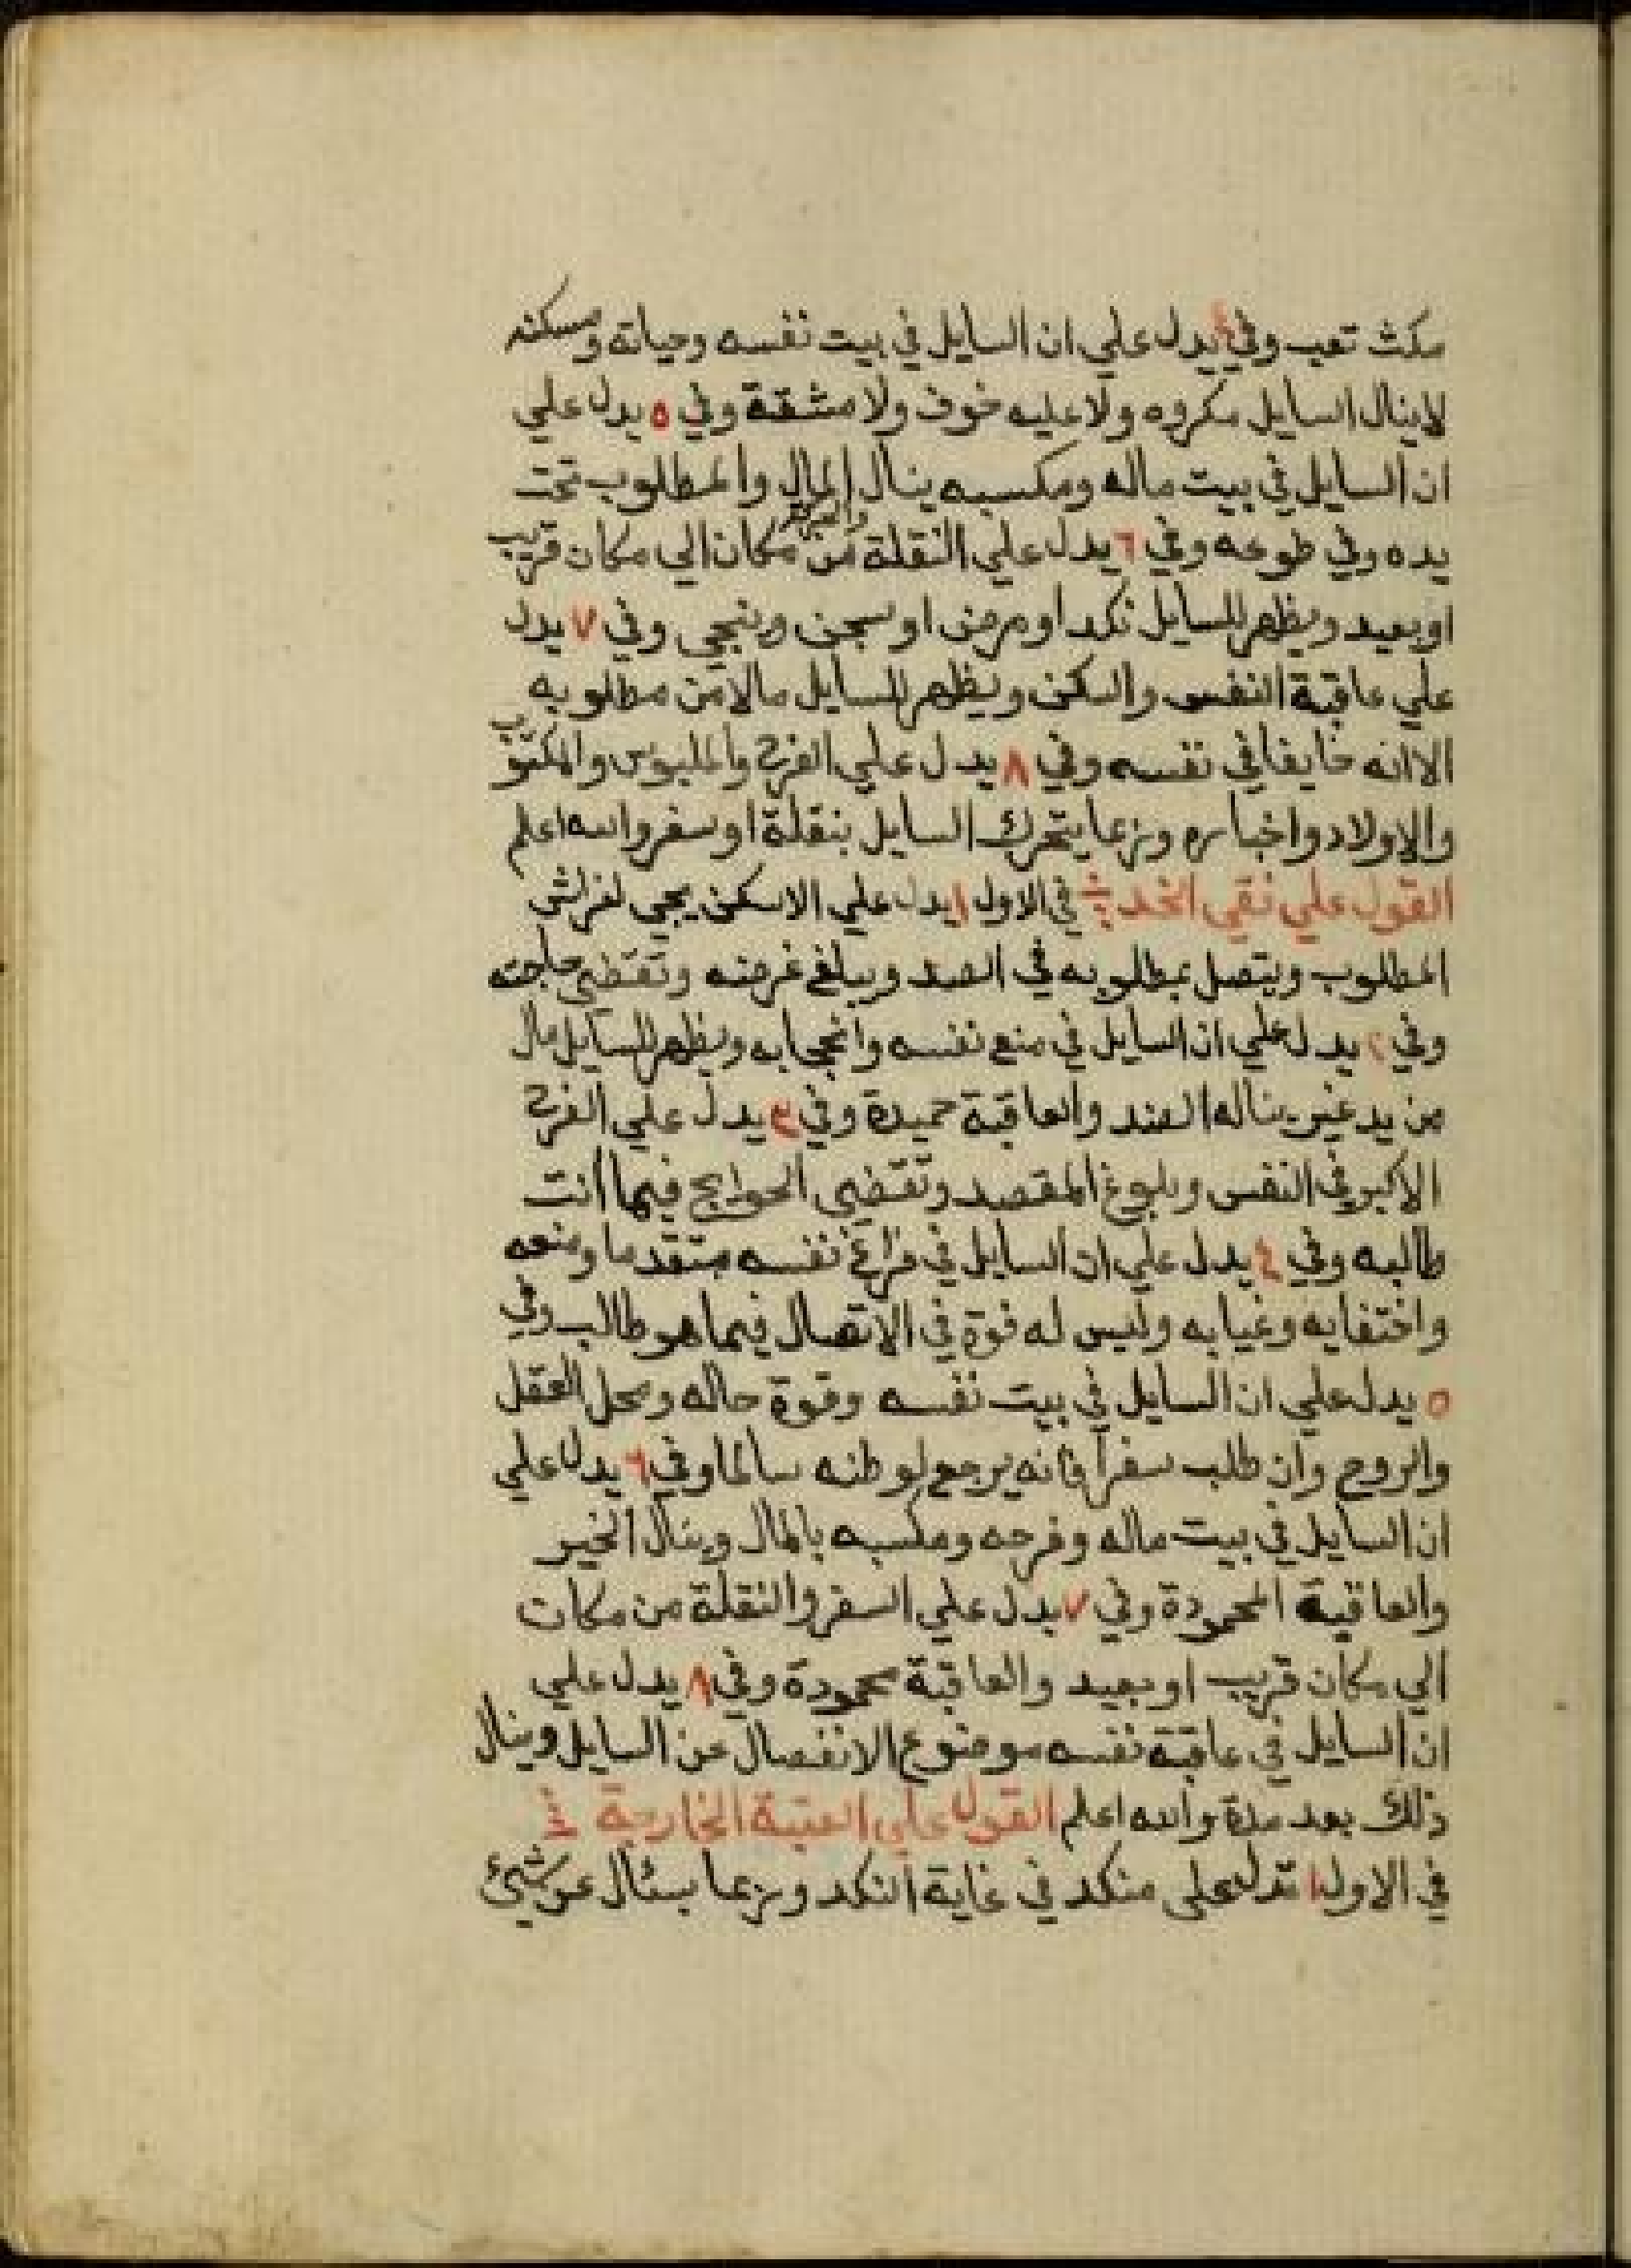 مكث تعب وفي ٤ يدل علي ان السايل في بيت نفسه وحياته ومسكنه
لاينال السايل مكروه ولا عليه خوف ولا مشقة وفي ٥ يدل علي
ان السايل في بيت ماله ومكسبه ينال المال والمطلوب تحت
يده وفي طوعه وفي ٦ يدل علي النقلة من مكان الي مكان قريب
او بعيد ويظهر للسايل نكد او مرض او سجن وينجي وفي ٧ يدل
علي عاقبة النفس والسكن ويظهر للسايل مالا من مطلوبه
الا انه خايفا في نفسه وفي ٨ يدل علي الفرح والملبوس والمكتوب
والاولاد واخباره وربما يتحرك السايل بنقلة او سفر والله اعلم
القول علي نقي الخد في الاول ١ يدل علي الاسكن يجي لغرلش
المطلوب ويتصل بمطلوبه في الصد ويبلغ غرضه وتقتضي حاجته
وفي ٢ يدل علي ان السايل في منع نفسه وانحجابه ويظهر للسايل مال
من يد غير يناله الصد والعاقبة حميدة وفي ٣ يدل علي الفرح
الاكبر في النفس وبلوغ المقصد وتقتضي الحوايج فيما انت
طالبه وفي ٤ يدل علي ان السايل في فراغ نفسه متقدما ومنعه
واختفايه وغيابه وليس له قوة في الاتصال فيما هو طالب وفي
٥ يدل علي ان السايل في بيت نفسه وقوة حاله ومحل العقل
والروح وان طلب سفرا فانه يرجع لوطنه سالما وفي ٦ يدل علي
ان السايل في بيت ماله وفرحه ومكسبه بالمال وينال الخير
والعاقبة المحمودة وفي ٧ يدل علي السفر والنقلة من مكان
الي مكان قريب او بعيد والعاقبة محمودة وفي ٨ يدل علي
ان السايل في عاقبة نفسه موضوع الانفصال عن السايل وينال
ذلك بعد مدة والله اعلم القول علي العتبة الخارجة
في الاول ١ تدل علي منكد في غاية النكد وربما يسئال عن شيئ